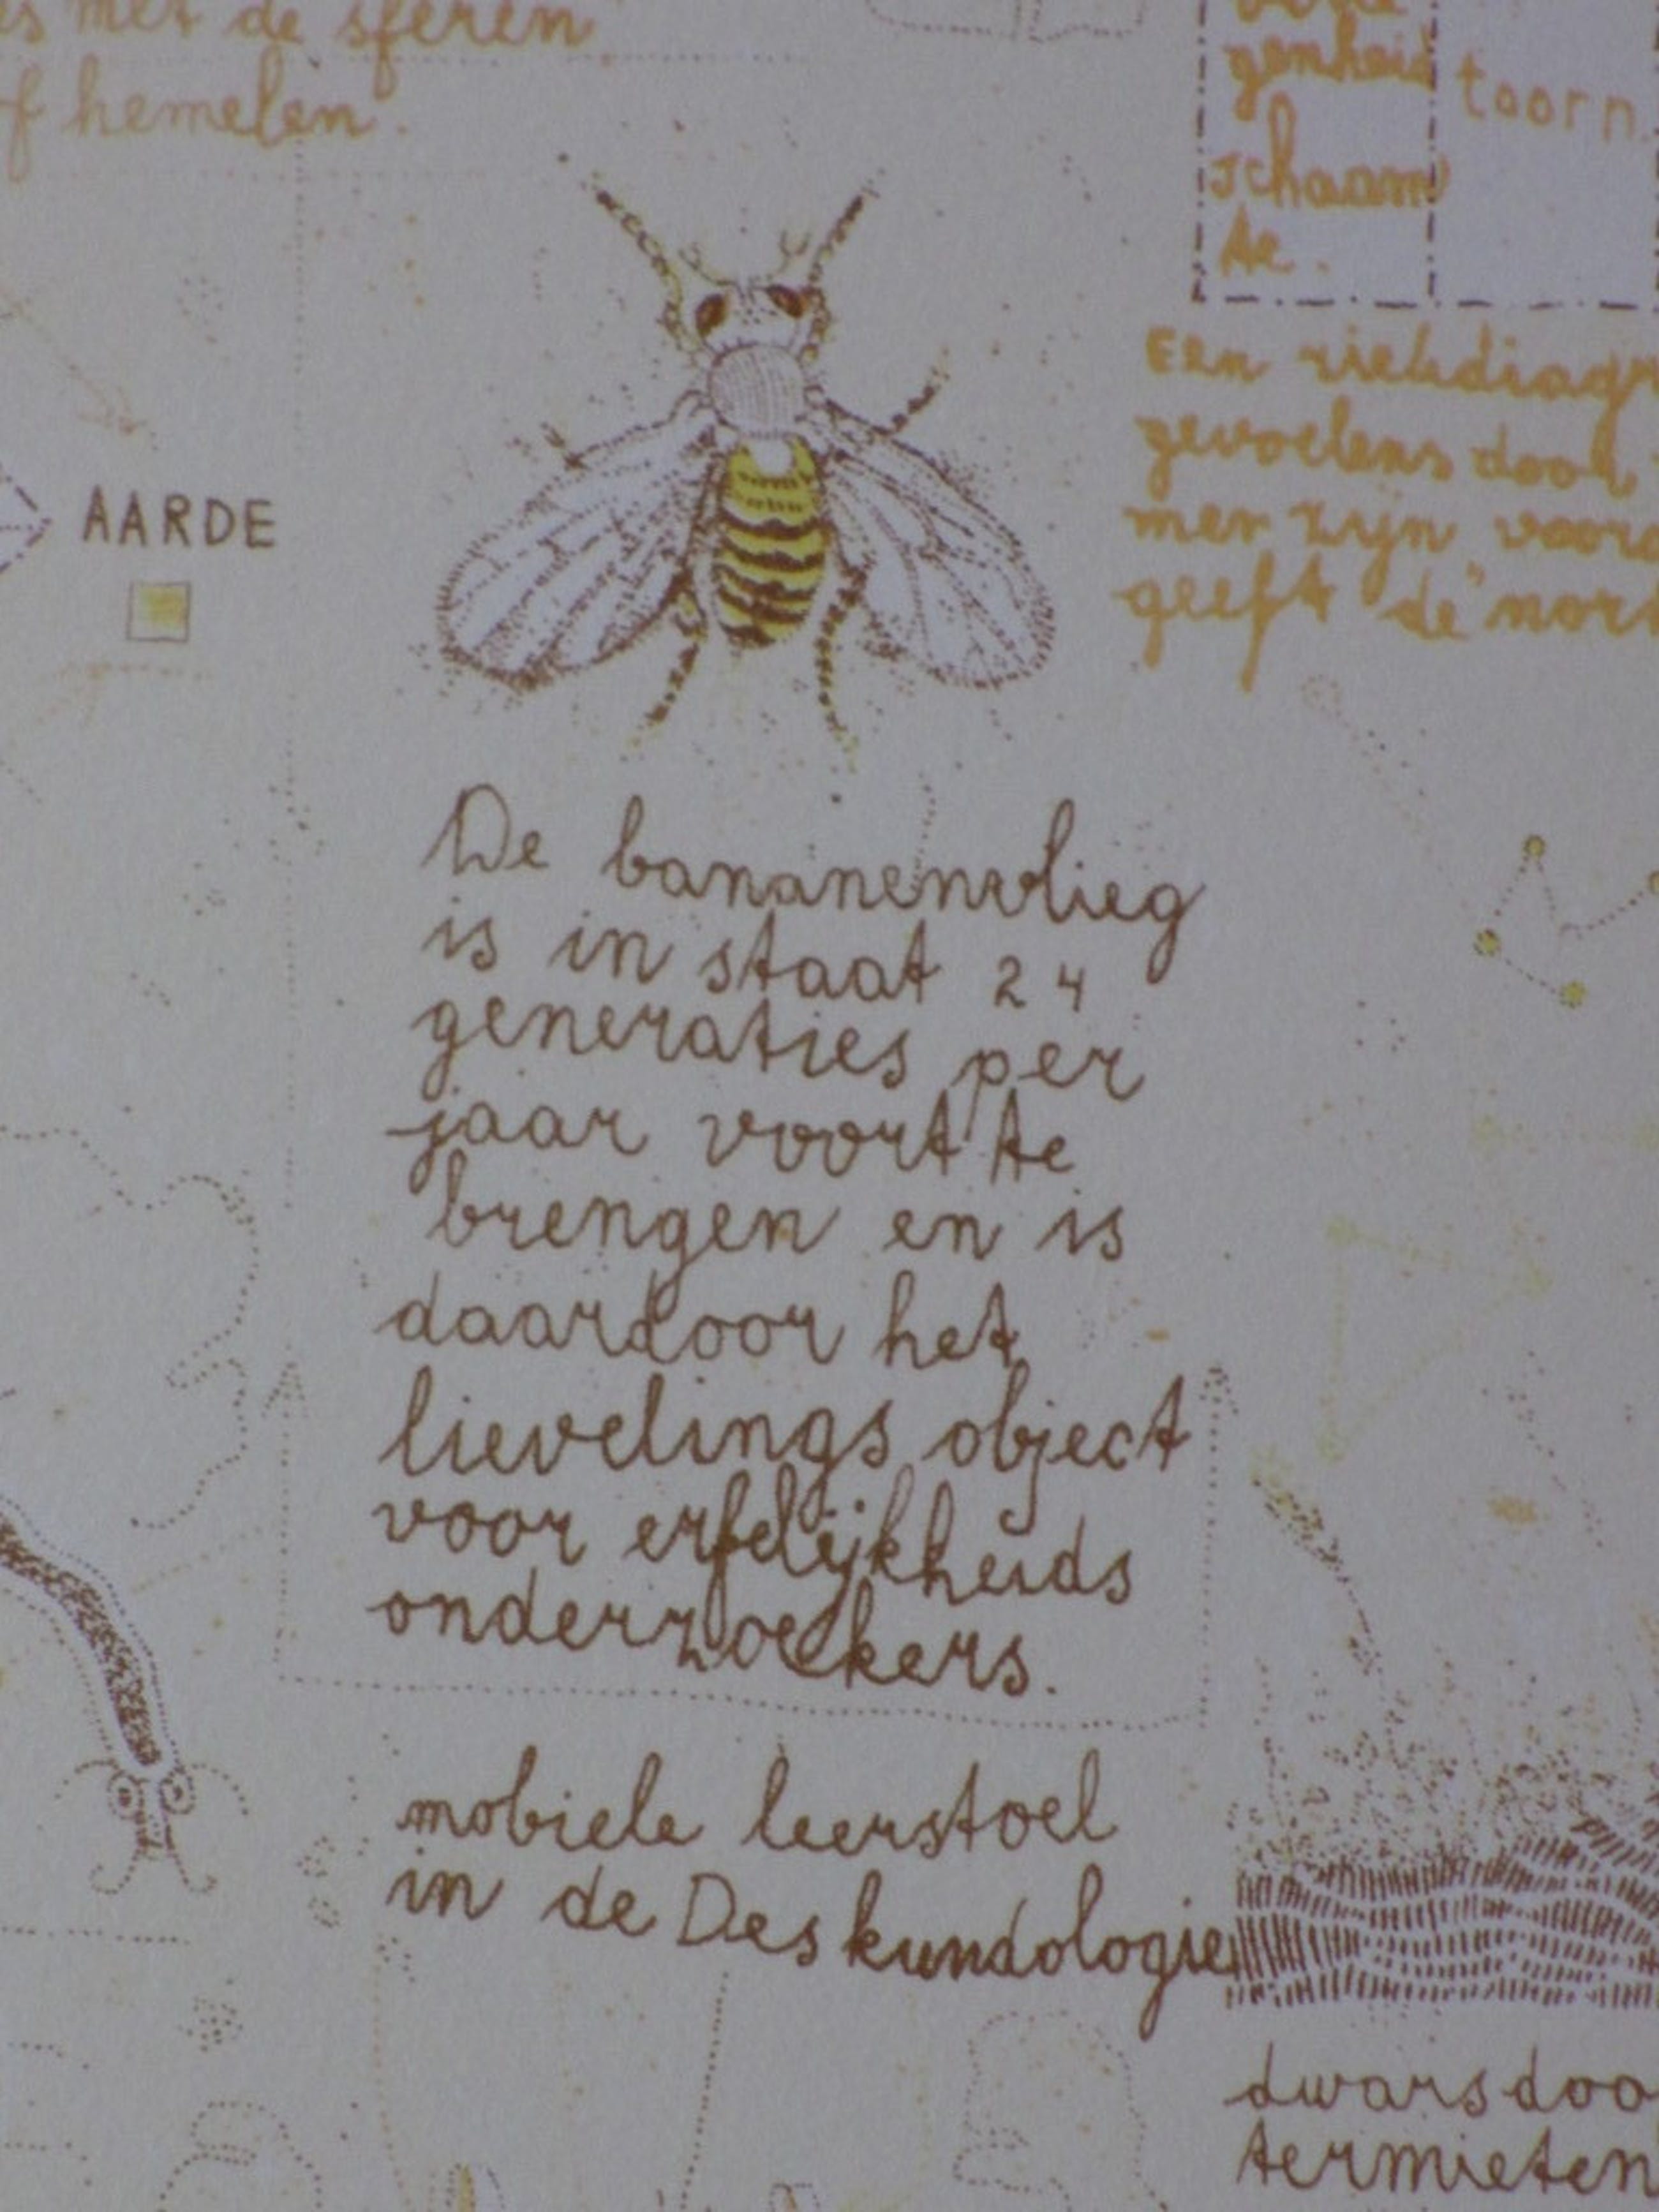 es met de sferen
of hemelen.
genheid
toorn.
schaam
te.
Een riekdiagr
gevoelens door
men zijn
geeft de "nor
AARDE
De bananenvlieg
is in staat 24
generaties per
jaar voort te
brengen en is
daardoor het
lievelings object
voor erfelijkheids
onderzoekers.
mobiele leerstoel
in de Des kundologie
dwars doo
termieten